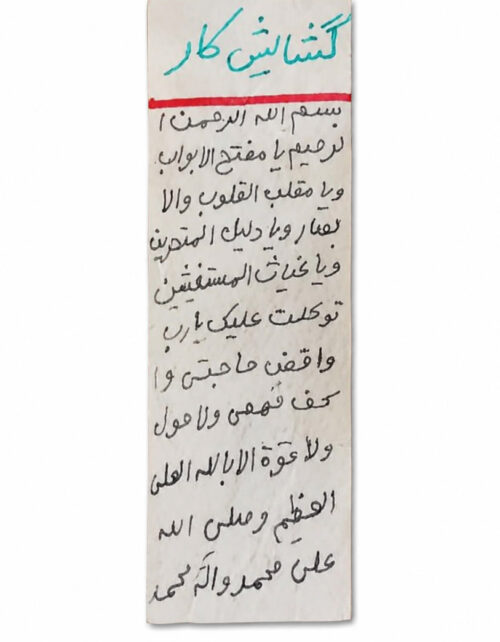 گشایش کار
بسم الله الرحمن ا
لرحیم یا مفتح الابواب
ویا مقلب القلوب والا
بصار ویا دلیل المتحیرین
ویا غیاث المستغیثین
توکلت علیک یارب
واقض حاجتی وا
کف مهمی ولا حول
ولا قوة الا بالله العلی
العظیم وصلی الله
علی محمد وآله محمد